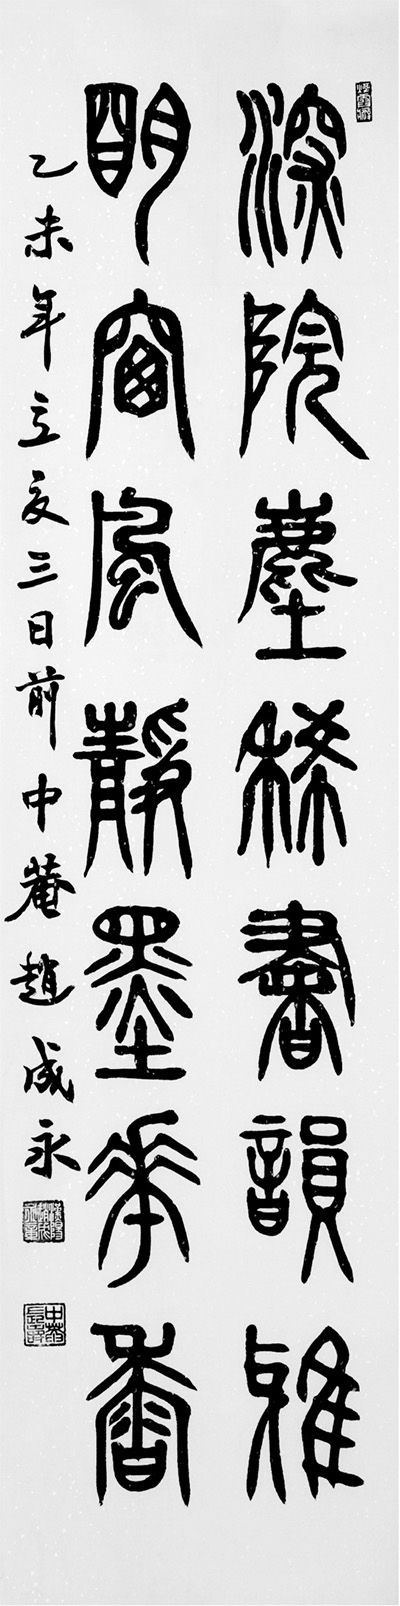 深院塵稀書韻雅
明窗風靜墨花香
乙未年立夏三日前中菴趙成永